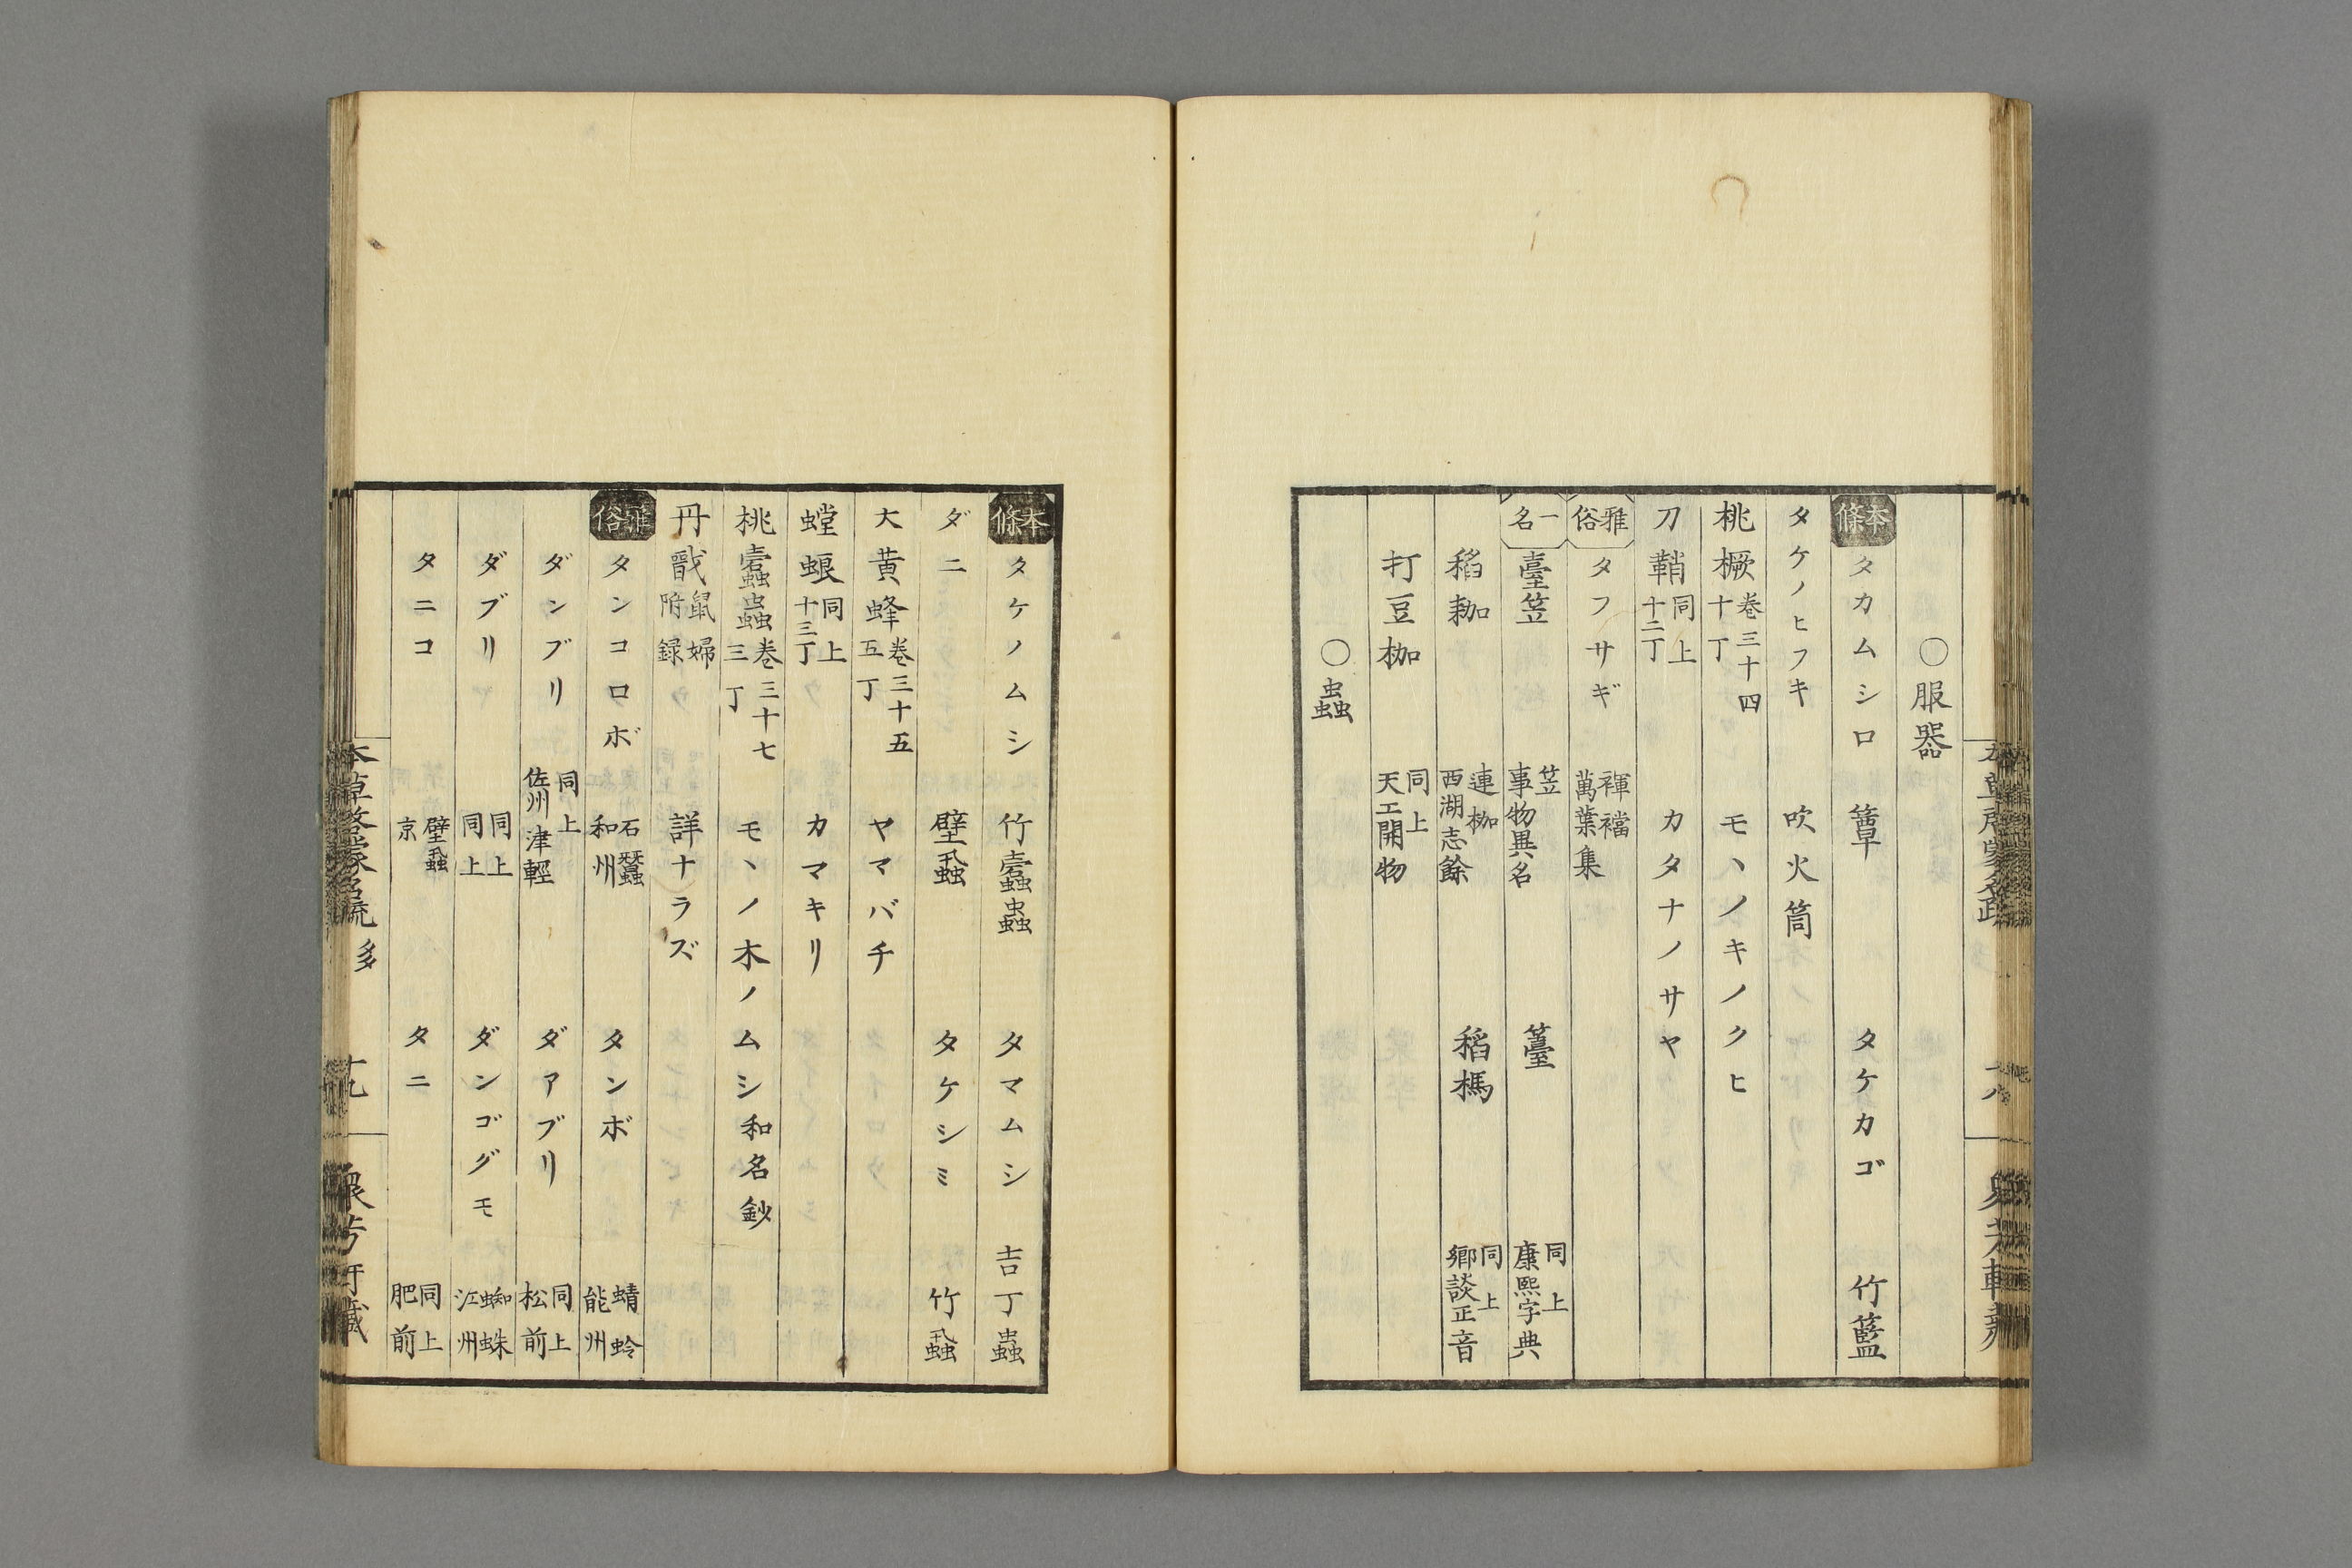 〇服器
本條 タカムシロ 簟 タケカゴ 竹籃
タケノヒフキ 吹火筒
桃橛 卷三十四 十丁 モヽノキノクヒ
刀鞘 同上 十二丁 カタナノサヤ
雅俗 タフサギ 褌襠 萬葉集
一名 臺笠 笠 事物異名 薹 同上 康熙字典
稻耞 連枷 西湖志餘 稻榪 同上 鄉談正音
打豆枷 同上 天工開物
〇蟲
本條 タケノムシ 竹蠹蟲 タマムシ 吉丁蟲
ダニ 壁蝨 タケシミ 竹蝨
大黄蜂 卷三十五 五丁 ヤマバチ
螳蜋 同上 十三丁 カマキリ
桃蠹蟲 卷三十七 三丁 モヽノ木ノムシ和名鈔
丹戩 鼠婦附録 詳ナラズ
雅俗 タンコロボ 石蠶 和州 タンボ 蜻蛉 能州
ダンブリ 同上 佐州 津輕 ダアブリ 同上 松前
ダブリ 同上 同上 ダンゴグモ 蜘蛛 江州
タニコ 壁蝨 京 タニ 同上 肥前
本草啓蒙名疏 多 十九 衆芳軒藏